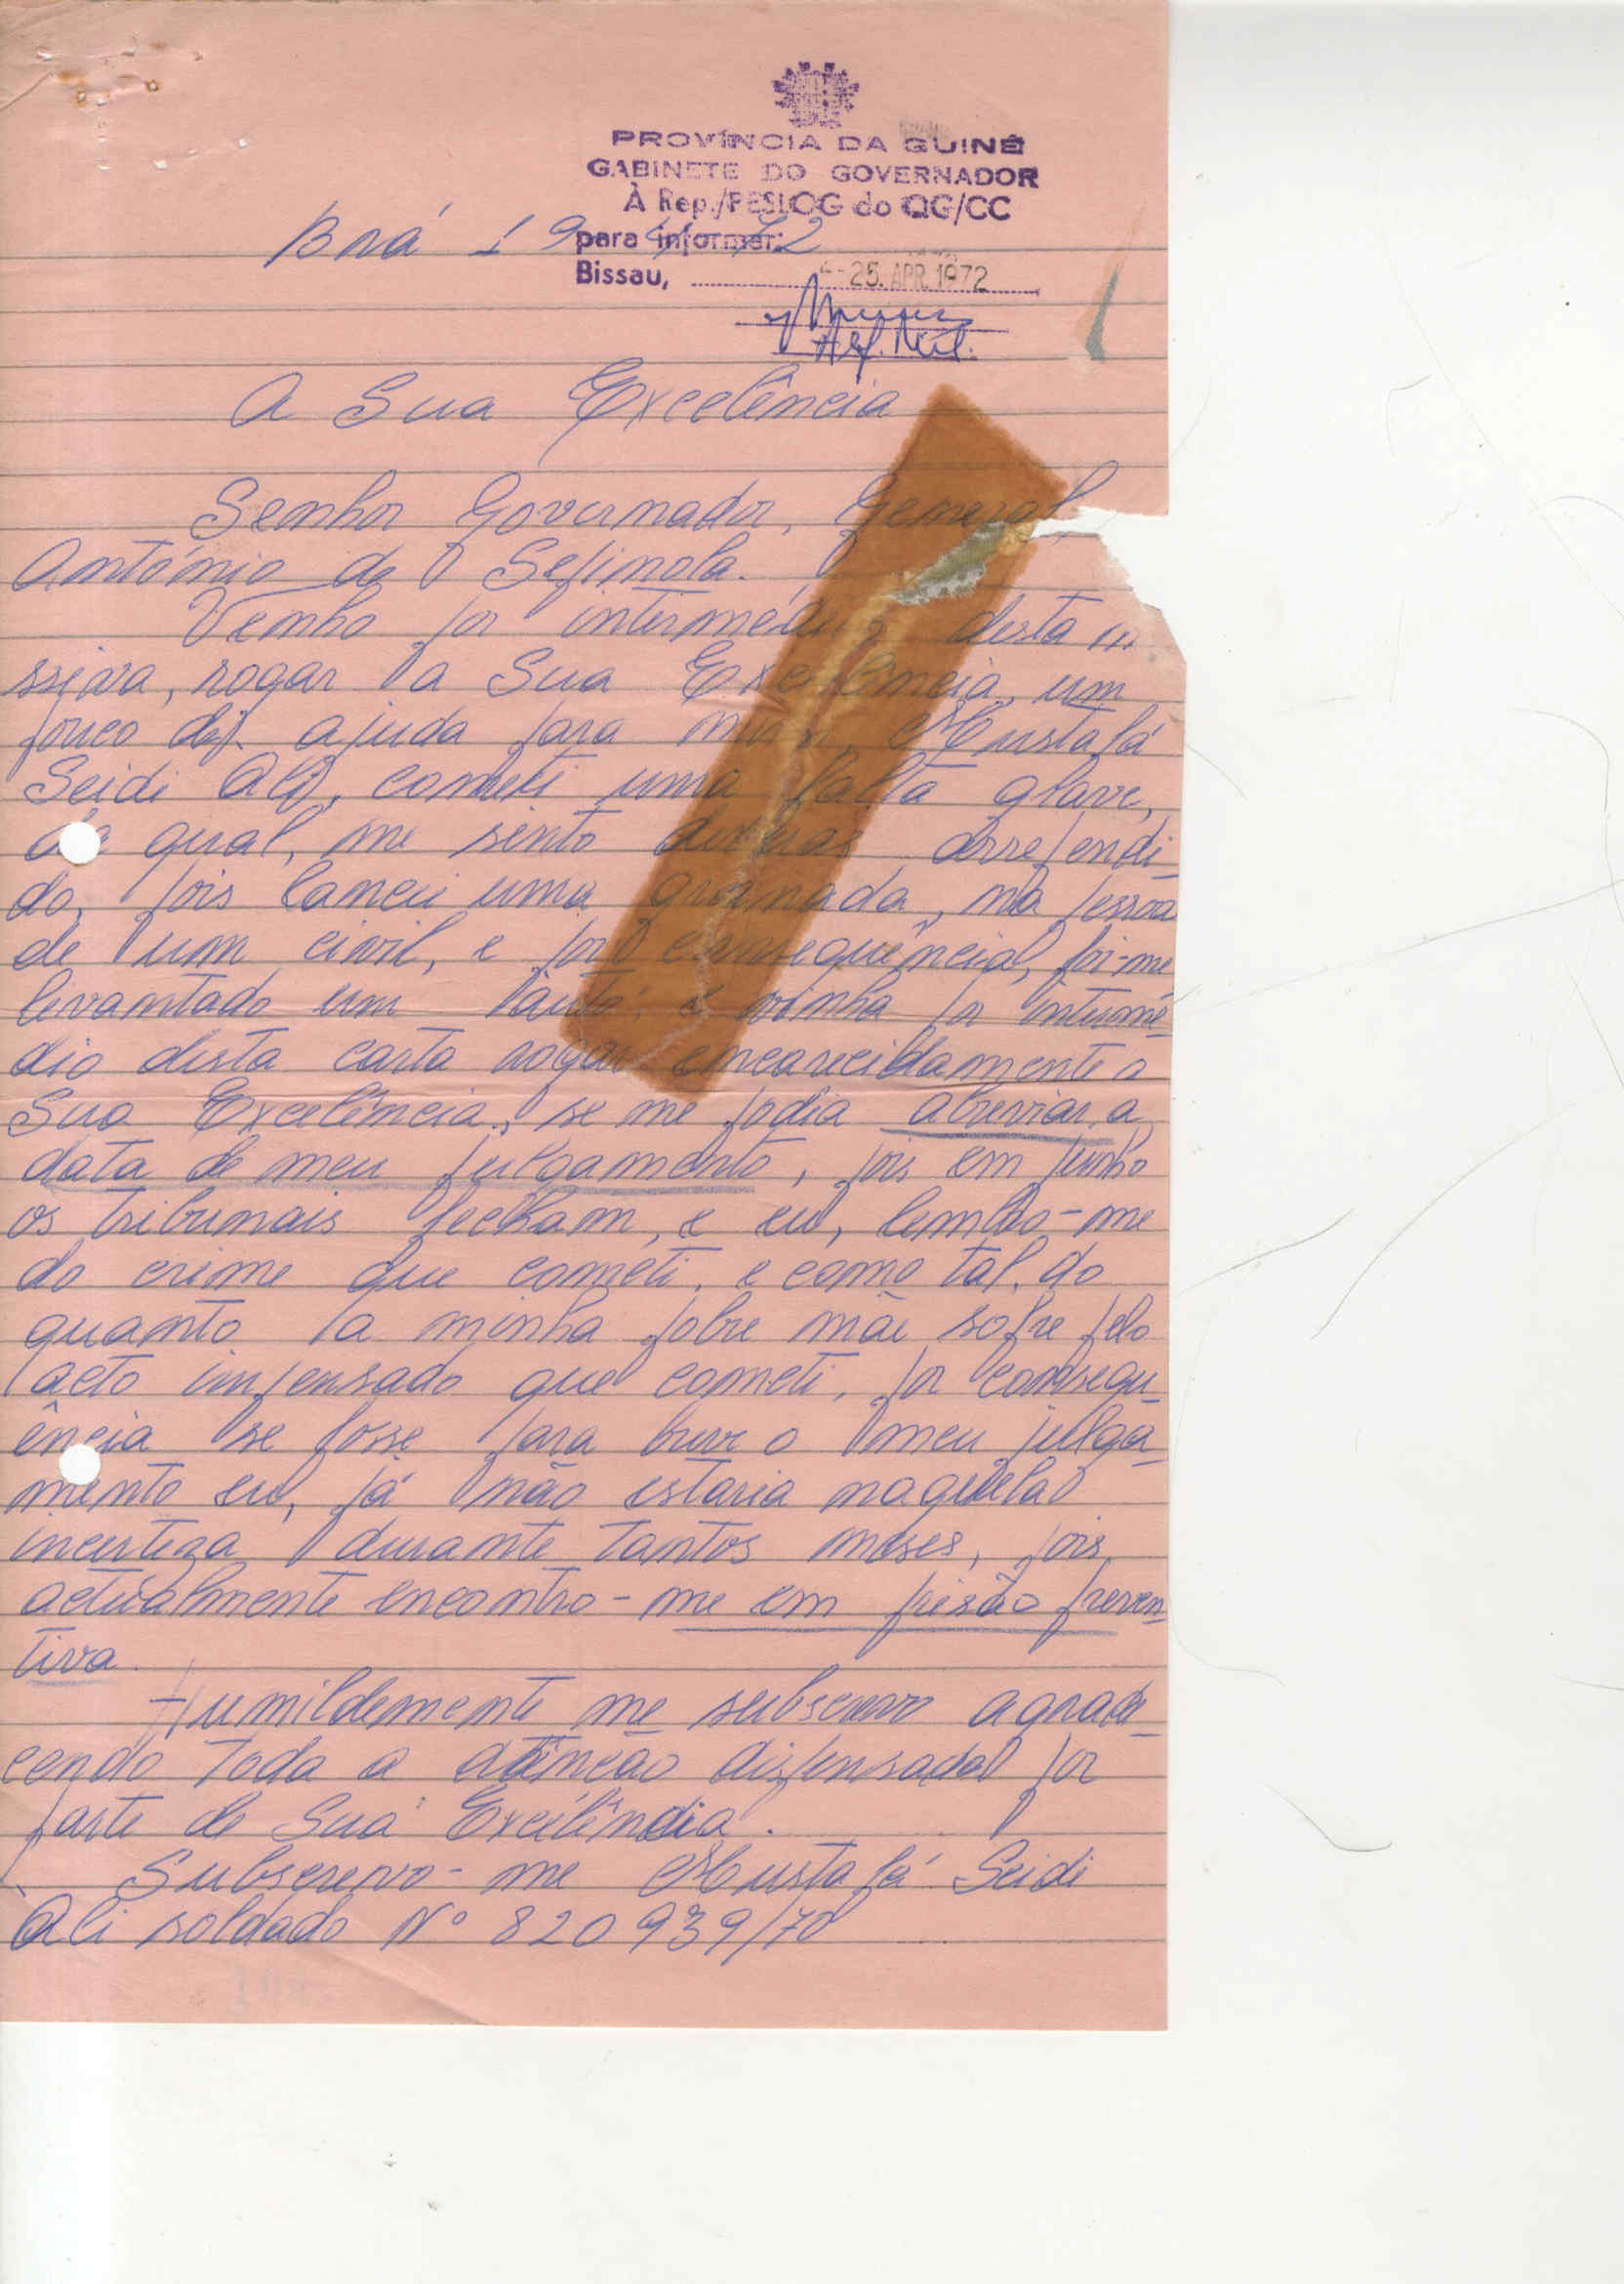 PROVÍNCIA DA GUINÉ
GABINETE DO GOVERNADOR
À Rep./PESLOG do QG/CC
Brá 19-4-72
para informar:
Bissau, 25. APR. 1972
Alf. Mil.
A Sua Excelência
Senhor Governador, General
António de Spinola.
Venho por intermédio desta
ssiva, rogar a Sua Excelência, um
pouco de ajuda para mim, Mustafá
Seidi Ali, cometi uma falta grave,
da qual, me sinto deveras arrependi-
do, pois lancei uma granada, na pessoa
de um civil, e por consequência, foi-me
levantado um auto, e vinha por intermé-
dio desta carta rogar encarecidamente a
Sua Excelência, se me podia abreviar a
data de meu julgamento, pois em Junho
os tribunais fecham, e eu, lembro-me
do crime que cometi, e como tal, do
quanto a minha pobre mãe sofre pelo
acto impensado que cometi, por consequ-
ência se fosse para breve o meu julga-
mento eu, já não estaria naquela
incerteza durante tantos meses, pois
actualmente encontro-me em prisão preven-
tiva.
Humildemente me subscrevo agrade-
cendo toda a atenção dispensada por
parte de Sua Excelência.
Subscrevo-me Mustafá Seidi
Ali soldado Nº 820939/70